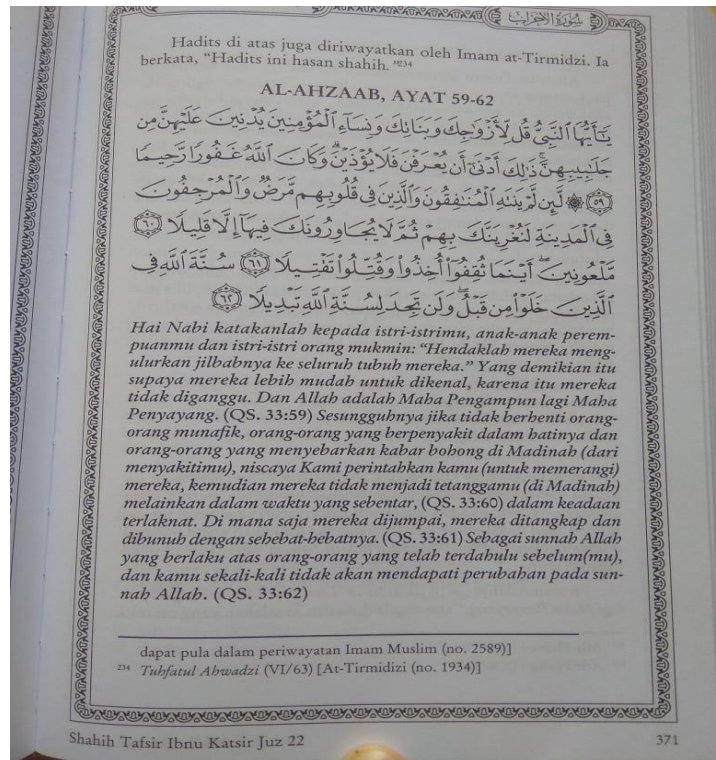 سُورَةُ الْأَحْزَابِ
Hadits di atas juga diriwayatkan oleh Imam at-Tirmidzi. Ia
berkata, “Hadits ini hasan shahih.”²³⁴
AL-AHZAAB, AYAT 59-62
يَٰٓأَيُّهَا ٱلنَّبِىُّ قُل لِّأَزْوَٰجِكَ وَبَنَاتِكَ وَنِسَآءِ ٱلْمُؤْمِنِينَ يُدْنِينَ عَلَيْهِنَّ مِن
جَلَٰبِيبِهِنَّ ۚ ذَٰلِكَ أَدْنَىٰٓ أَن يُعْرَفْنَ فَلَا يُؤْذَيْنَ ۗ وَكَانَ ٱللَّهُ غَفُورًا رَّحِيمًا
﴿٥٩﴾ ۞ لَّئِن لَّمْ يَنتَهِ ٱلْمُنَٰفِقُونَ وَٱلَّذِينَ فِى قُلُوبِهِم مَّرَضٌ وَٱلْمُرْجِفُونَ
فِى ٱلْمَدِينَةِ لَنُغْرِيَنَّكَ بِهِمْ ثُمَّ لَا يُجَاوِرُونَكَ فِيهَآ إِلَّا قَلِيلًا ﴿٦٠﴾
مَّلْعُونِينَ ۖ أَيْنَمَا ثُقِفُوٓا۟ أُخِذُوا۟ وَقُتِّلُوا۟ تَقْتِيلًا ﴿٦١﴾ سُنَّةَ ٱللَّهِ فِى
ٱلَّذِينَ خَلَوْا۟ مِن قَبْلُ ۖ وَلَن تَجِدَ لِسُنَّةِ ٱللَّهِ تَبْدِيلًا ﴿٦٢﴾
Hai Nabi katakanlah kepada istri-istrimu, anak-anak perem-
puanmu dan istri-istri orang mukmin: “Hendaklah mereka meng-
ulurkan jilbabnya ke seluruh tubuh mereka.” Yang demikian itu
supaya mereka lebih mudah untuk dikenal, karena itu mereka
tidak diganggu. Dan Allah adalah Maha Pengampun lagi Maha
Penyayang. (QS. 33:59) Sesungguhnya jika tidak berhenti orang-
orang munafik, orang-orang yang berpenyakit dalam hatinya dan
orang-orang yang menyebarkan kabar bohong di Madinah (dari
menyakitimu), niscaya Kami perintahkan kamu (untuk memerangi)
mereka, kemudian mereka tidak menjadi tetanggamu (di Madinah)
melainkan dalam waktu yang sebentar, (QS. 33:60) dalam keadaan
terlaknat. Di mana saja mereka dijumpai, mereka ditangkap dan
dibunuh dengan sehebat-hebatnya. (QS. 33:61) Sebagai sunnah Allah
yang berlaku atas orang-orang yang telah terdahulu sebelum(mu),
dan kamu sekali-kali tidak akan mendapati perubahan pada sun-
nah Allah. (QS. 33:62)
dapat pula dalam periwayatan Imam Muslim (no. 2589)]
²³⁴ Tuhfatul Ahwadzi (VI/63) [At-Tirmidizi (no. 1934)]
Shahih Tafsir Ibnu Katsir Juz 22
371